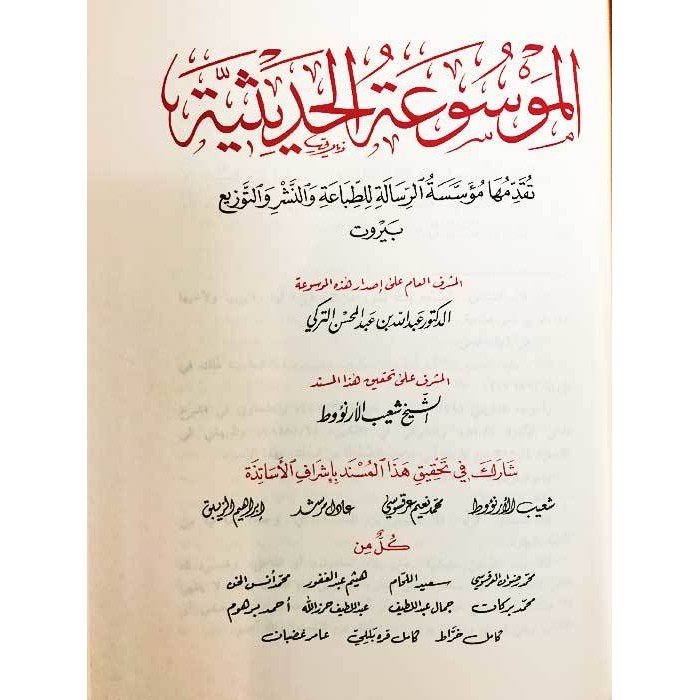 الموسوعة الحديثية
تقدمها مؤسسة الرسالة للطباعة والنشر والتوزيع
بيروت
المشرف العام على إصدار هذه الموسوعة
الدكتور عبد الله بن عبد المحسن التركي
المشرف على تحقيق هذا المسند
الشيخ شعيب الأرنؤوط
شارك في تحقيق هذا المسند بإشراف الأساتذة
شعيب الأرنؤوط محمد نعيم عرقسوسي عادل مرشد إبراهيم الزيبق
كل من
محمد رضوان العرقسوسي سعيد اللحام هيثم عبد الغفور محمد أنس الخن
محمد بركات جمال عبد اللطيف عبد اللطيف حرز الله أحمد برهوم
كامل خراط كامل قره بللي عامر غضبان